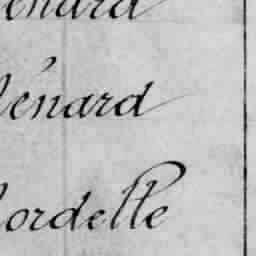 énard
énard
ordelle